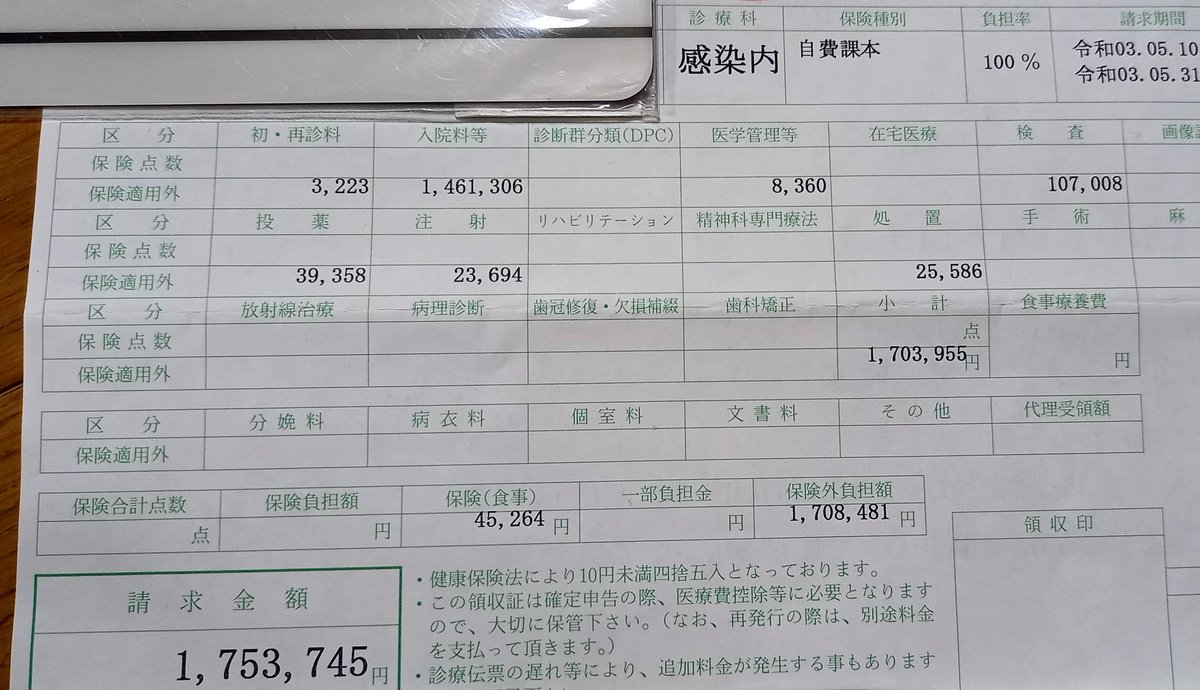 診療科 保険種別 負担率 請求期間
感染内 自費課本 100 % 令和03.05.10
令和03.05.31
区 分 初・再診料 入院料等 診断群分類(DPC) 医学管理等 在宅医療 検 査
保険点数
保険適用外 3,223 1,461,306 8,360 107,008
区 分 投 薬 注 射 リハビリテーション 精神科専門療法 処 置 手 術 麻
保険点数
保険適用外 39,358 23,694 25,586
区 分 放射線治療 病理診断 歯冠修復・欠損補綴 歯科矯正 小 計 食事療養費
保険点数 点
保険適用外 1,703,955円 円
区 分 分娩料 病衣料 個室料 文書料 その他 代理受領額
保険適用外
保険合計点数 保険負担額 保険(食事) 一部負担金 保険外負担額
点 円 45,264 円 円 1,708,481 円
領収印
請求金額
1,753,745円
・健康保険法により10円未満四捨五入となっております。
・この領収証は確定申告の際、医療費控除等に必要となります
ので、大切に保管下さい。(なお、再発行の際は、別途料金
を支払って頂きます。)
・診療伝票の遅れ等により、追加料金が発生する事もあります